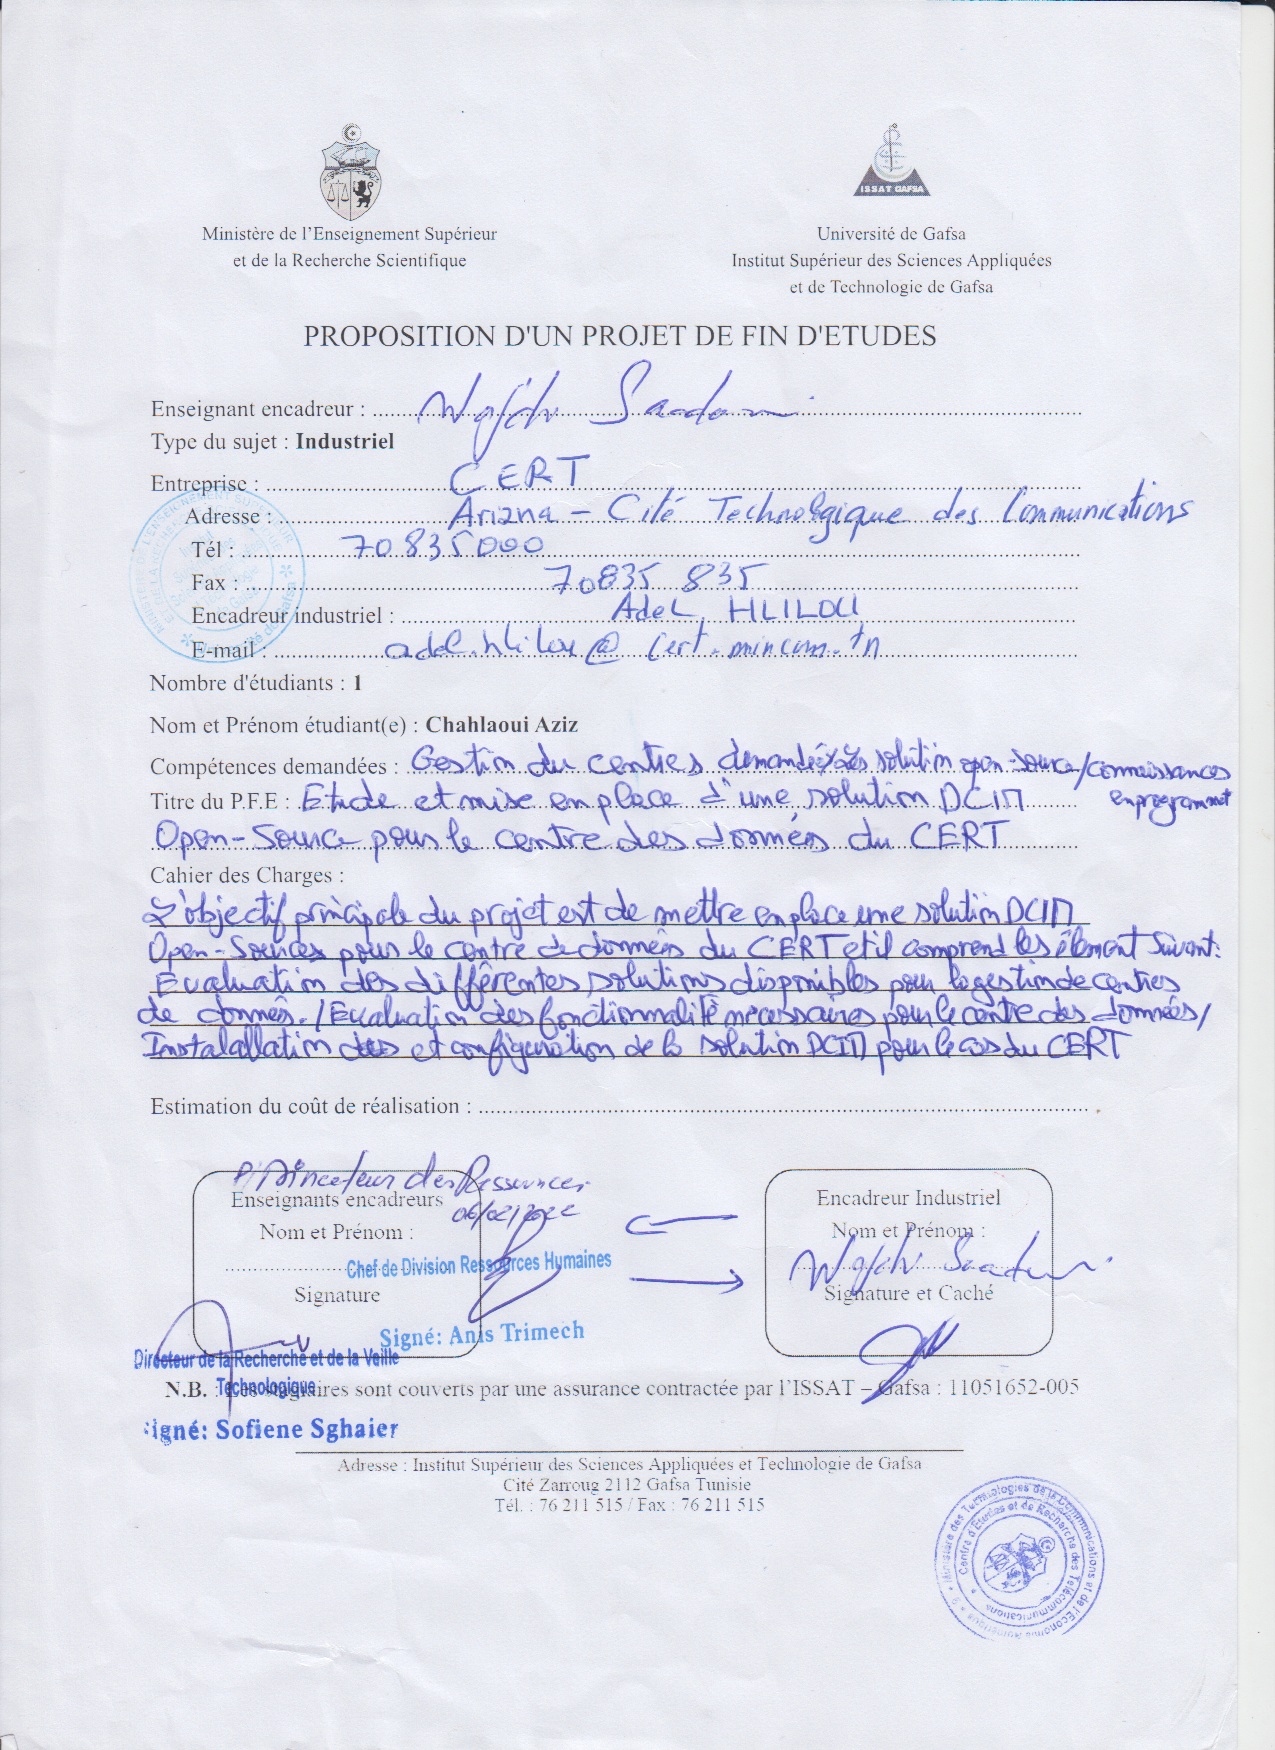 ISSAT GAFSA
Ministère de l'Enseignement Supérieur
et de la Recherche Scientifique
Université de Gafsa
Institut Supérieur des Sciences Appliquées
et de Technologie de Gafsa
PROPOSITION D'UN PROJET DE FIN D'ETUDES
Enseignant encadreur : Wajdi Saadaoui
Type du sujet : Industriel
Entreprise : CERT
Adresse : Ariana - Cité Technologique des Communications
Tél : 70835000
Fax : 70835 835
Encadreur industriel : Adel HLILOU
E-mail : adel.hlilou@cert.mincom.tn
Nombre d'étudiants : 1
Nom et Prénom étudiant(e) : Chahlaoui Aziz
Compétences demandées : Gestion du centres solution open-source/connaissances
Titre du P.F.E : Etude et mise en place d'une solution DCIM
Open-Source pour le centre des données du CERT
Cahier des Charges :
L'objectif principale du projet est de mettre en place une solution DCIM
Open-Sources pour le centre de données du CERT et il comprend les élement suivant:
Evaluation des différentes solutions disponibles pour la gestion de centres
de données. / Evaluation des fonctionnalité nécessaires pour le centre des données /
et configuration de la solution DCIM pour le cas du CERT
Estimation du coût de réalisation :
P/ Directeur des Ressources
Enseignants encadreurs
06/02/2022
Nom et Prénom :
Chef de Division Ressources Humaines
Signature
Signé: Anis Trimech
Encadreur Industriel
Nom et Prénom :
Wajdi Saadaoui
Signature et Caché
Directeur de la Recherche et de la Veille
Technologique
N.B. : sont couverts par une assurance contractée par l'ISSAT – Gafsa : 11051652-005
Signé: Sofiene Sghaier
Adresse : Institut Supérieur des Sciences Appliquées et Technologie de Gafsa
Cité Zarroug 2112 Gafsa Tunisie
Tél. : 76 211 515 / Fax : 76 211 515
Ministère des Technologies de la Communications et de l'Economie Numérique
Centre d'Etudes et de Recherche des Télécommunications